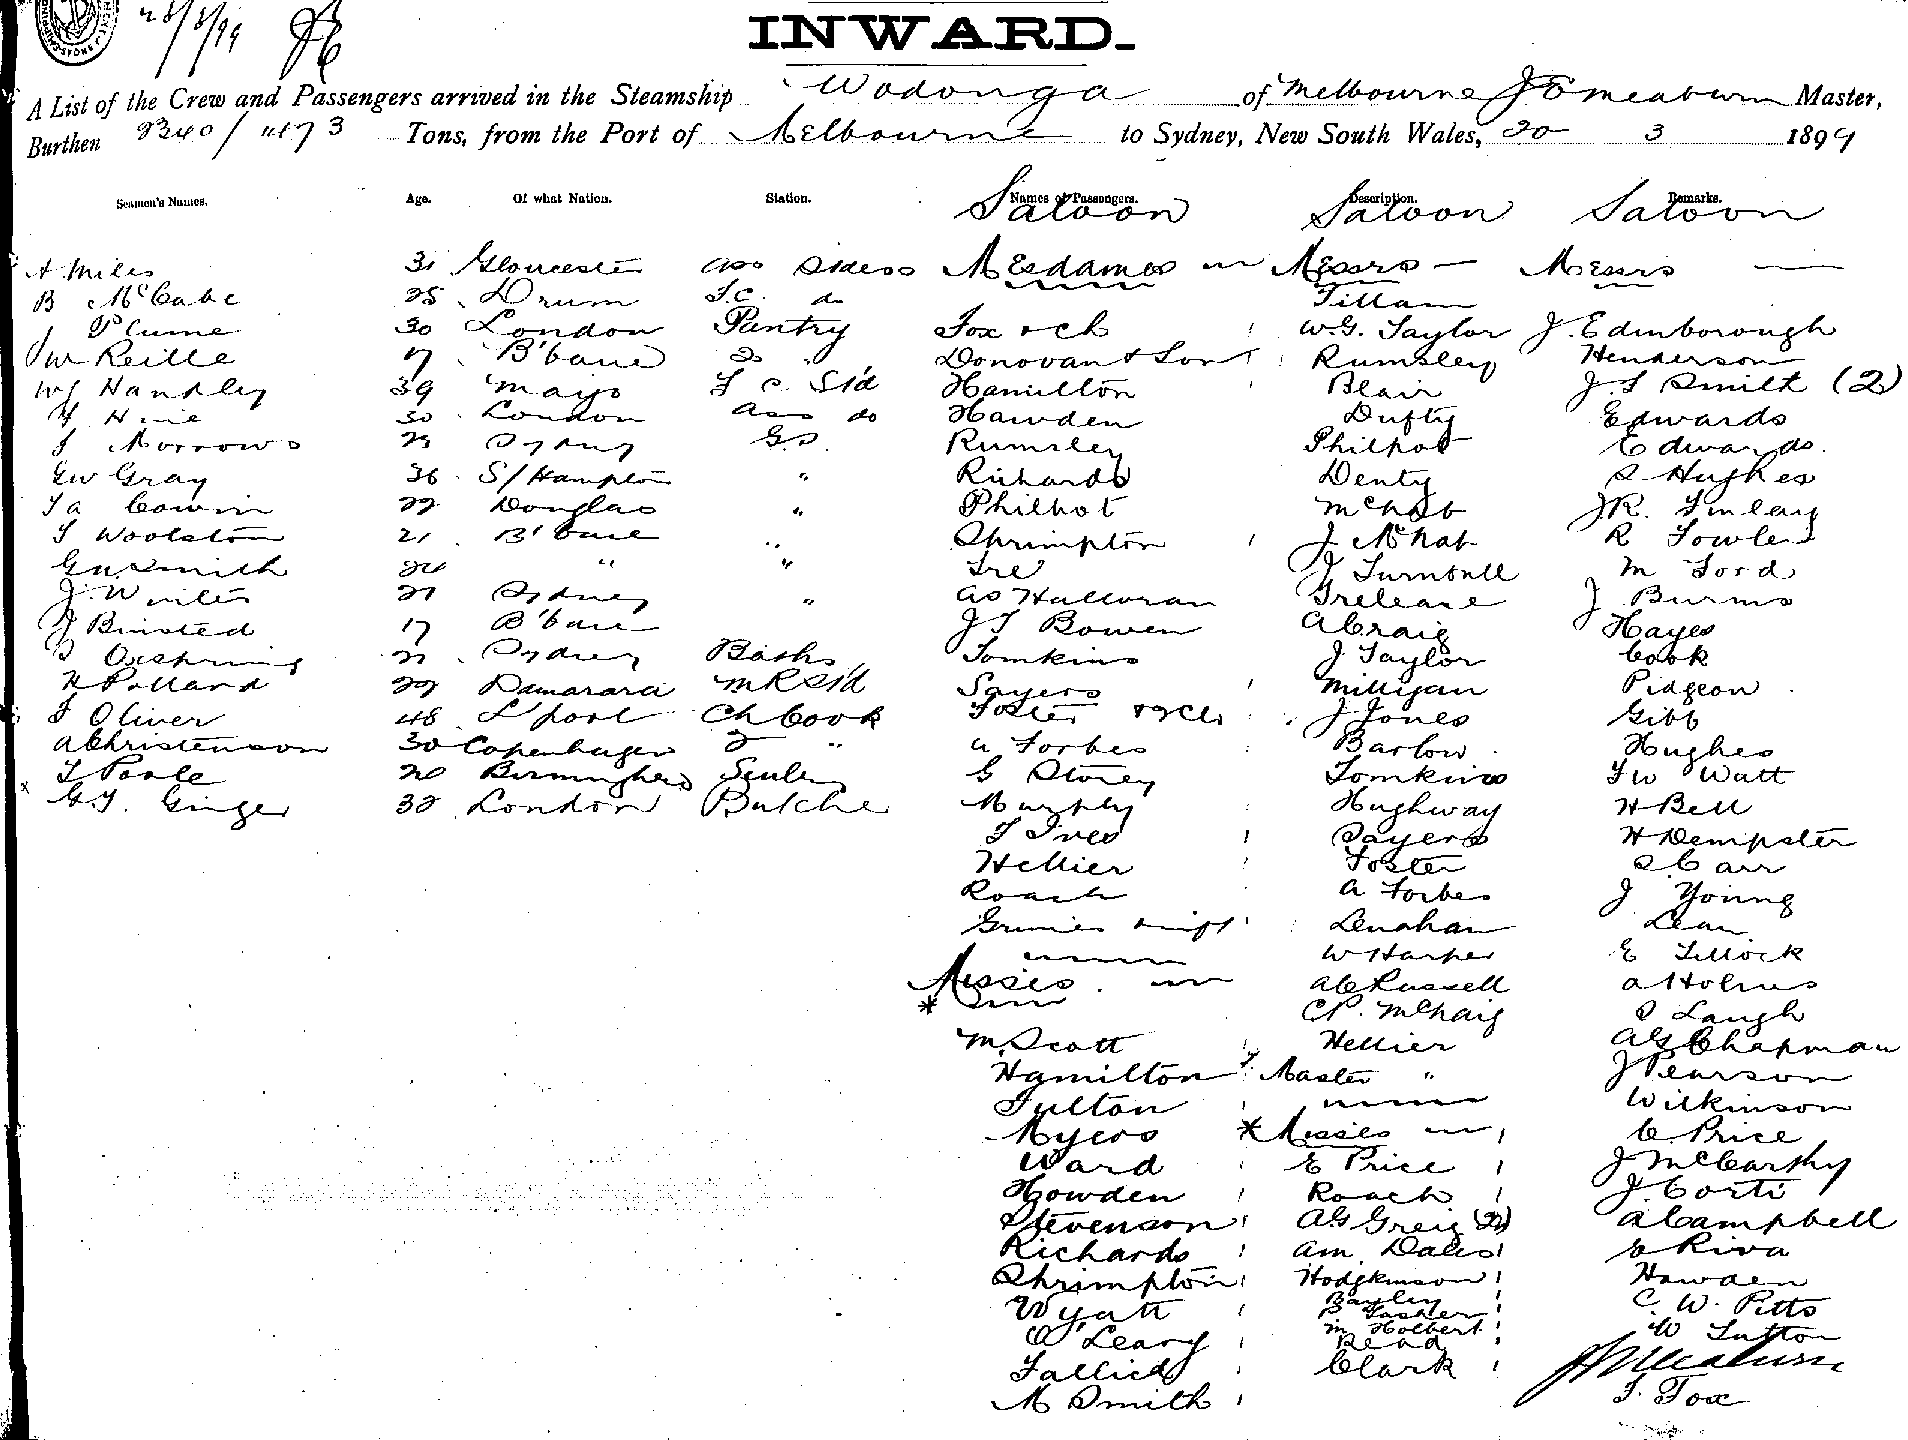 28/3/99
INWARD.
A List of the Crew and Passengers arrived in the Steamship Wodonga of Melbourne Master,
Burthen 2340/ Tons, from the Port of Melbourne to Sydney, New South Wales, 20 3 1899
Seamen's Names. Age. Of what Nation. Station. Names of Passengers. Description. Remarks.
Saloon Saloon Saloon
A Miles 31 Gloucester Mesdames Messrs — Messrs —
B McCabe 25 Drum F.C. do Tillam
J Plume 30 London Pantry Fox & ch W.G. Taylor J. Edinborough
W Reille 17 B'bane Do " Donovan & Son Rumsley Henderson
WJ Handley 39 Mayo F C. St'd Hamilton Blair J S Smith (2)
H Hine 30 London do Hawden Dufty Edwards
J Morrows Sydney G.S. Rumsley Philpot Edwards.
GW Gray 36 S/Hampton " Richards Denty S Hughes
Cowin Douglas " Philpot McNab JR. Finlay
T Woolston 21 B'bane " Shrimpton J McNab R Fowles
Smith " " J Turnbull M Ford
J. Winter Sydney " Halloran Treleave J Burns
J Binsted 17 B'bane J T Bowen A Craig Hayes
Sydney Tomkins J Taylor Cook
H Pollard Damarara St'd Sayers Milligan Pidgeon
J Oliver 48 L'pool Ch Cook Foster J Jones Gibb
A Christenson 30 Copenhagen " A Forbes Barlow Hughes
T Poole 20 G Storey Tomkins F W Watt
G.T. Ginger London Butcher Murphy Hughway H Bell
T Ives Sayers H Dempster
Hellier Foster S Carr
Roach A Forbes J Young
Lenahan Lean
W Harper E Tillock
Misses. AC Russell A Holmes
* CP. S Laugh
M. Scott Hellier AG Chapman
Hamilton Master " J Pearson
Fulton Wilkinson
Myers * Misses C Price
Ward E Price J McCarthy
Howden Roach J. Corti
Stevenson AG Greig (2) A Campbell
Richards AM Dales E Riva
Shrimpton Hodgkinson Hawden
Wyatt Bayley C. W. Pitts
O'Leary M Holbert W Sutton
Read
Clark
M Smith F. Fox